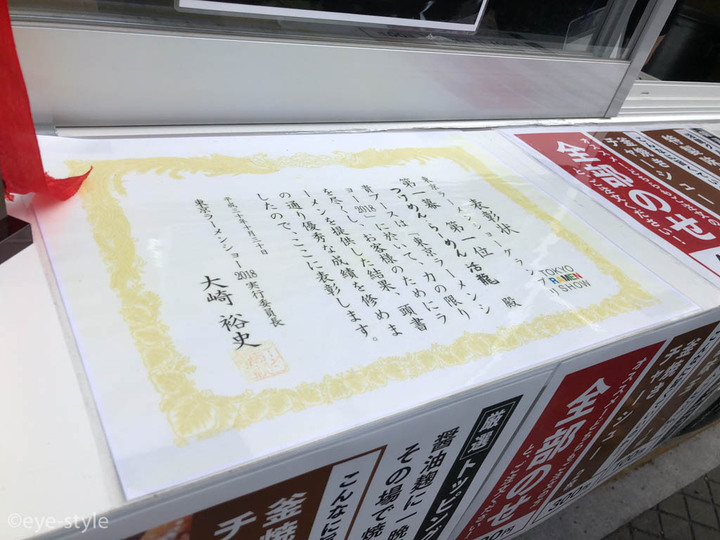 表彰状
東京ラーメンショーグランプリ
第一幕 第一位
つけめん・らーめん 活龍 殿
貴ブースは「東京ラーメンシ
ョー2018」に於いて、力の限り
を尽くし、お客様のためにラ
ーメンを提供した結果、頭書
の通り優秀な成績を修めま
したので、ここに表彰します。
平成三十年十月三十日
東京ラーメンショー2018 実行委員長
大崎 裕史
TOKYO
RAMEN
SHOW
全部のせ
全部のせ
厳選
トッピング
醤油麹に一晩
その場で焼
こんなに
釜焼
チ
釜焼き
チャーシュー
300円
©eye-style